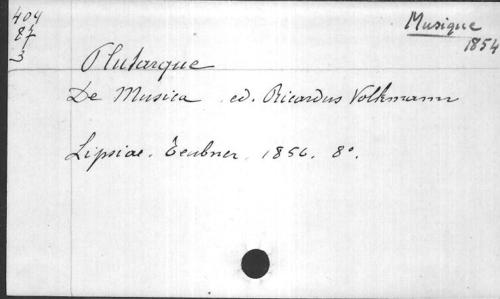 404
87
3
Musique
1854
Plutarque
De Musica ed. Ricardus Volkmann
Lipsiae. Teubner. 1856. 8°.